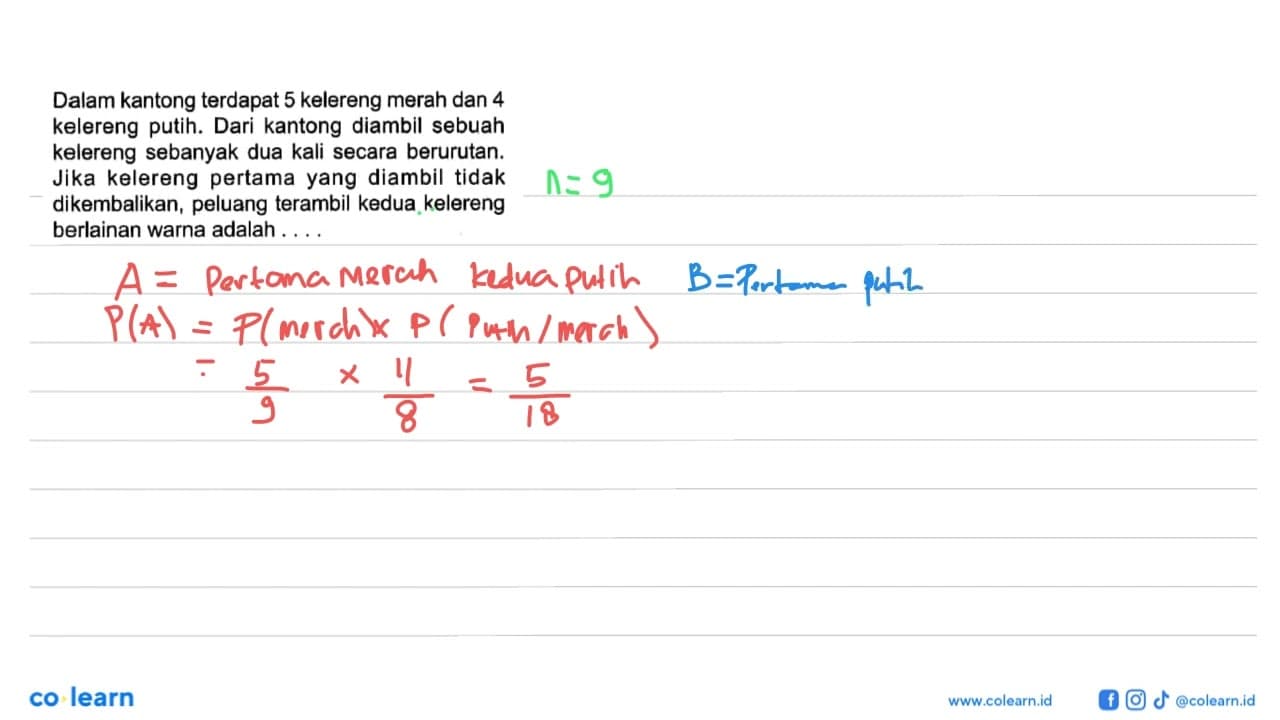 Dalam kantong terdapat 5 kelereng merah dan 4
kelereng putih. Dari kantong diambil sebuah
kelereng sebanyak dua kali secara berurutan.
Jika kelereng pertama yang diambil tidak
dikembalikan, peluang terambil kedua kelereng
berlainan warna adalah . . . .
n = 9
A = Pertama Merah kedua Putih
B = Pertama putih
P(A) = P(merah) x P(Putih/merah)
= 5/9 x 4/8 = 5/18
co learn
www.colearn.id
@colearn.id